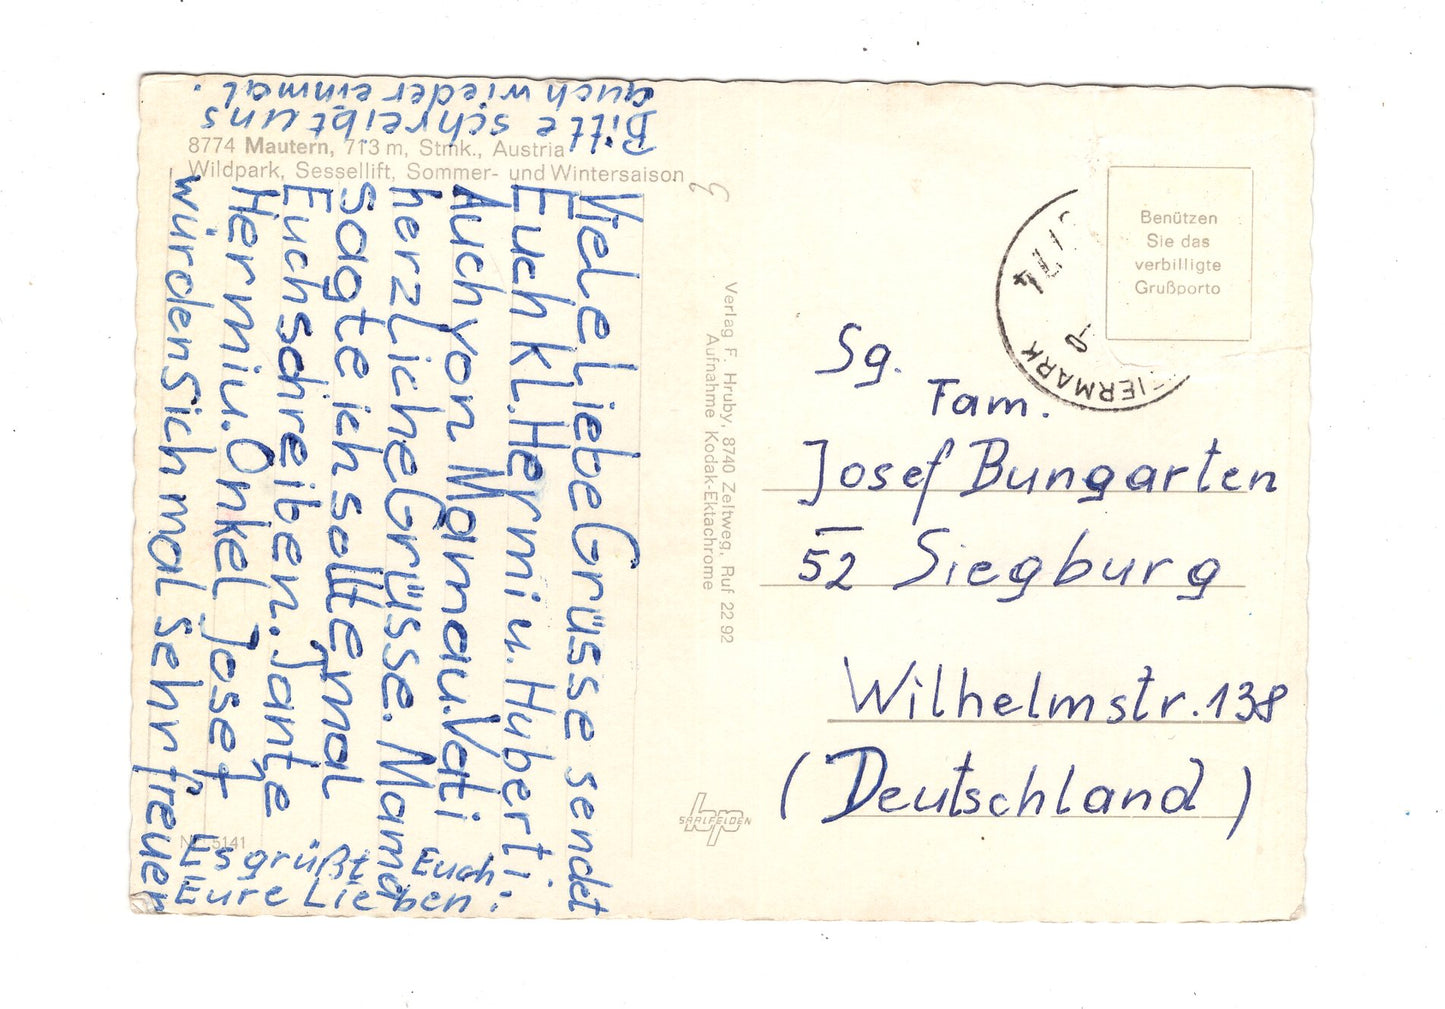 8774 Mautern, 713 m, Stmk., Austria
Wildpark, Sessellift, Sommer- und Wintersaison
Viele Liebe Grüsse sendet
Euch kl. Hermi u. Huberti
Auch von Mama u. Vati
herzliche Grüsse. Mama
sagte ich sollte mal
Euch schreiben. Tante
Hermi u. Onkel Josef
würden Sich mal sehr freuen
Es grüßt Euch
Eure Lieben:
Bitte schreibt uns
auch wieder einmal.
Nr. 5141
Verlag F. Hruby, 8740 Zeltweg, Ruf 22 92
Aufnahme Kodak-Ektachrome
SAALFELDEN
Benützen
Sie das
verbilligte
Grußporto
IERMARK
Sg.
Fam.
Josef Bungarten
52 Siegburg
Wilhelmstr. 138
(Deutschland)